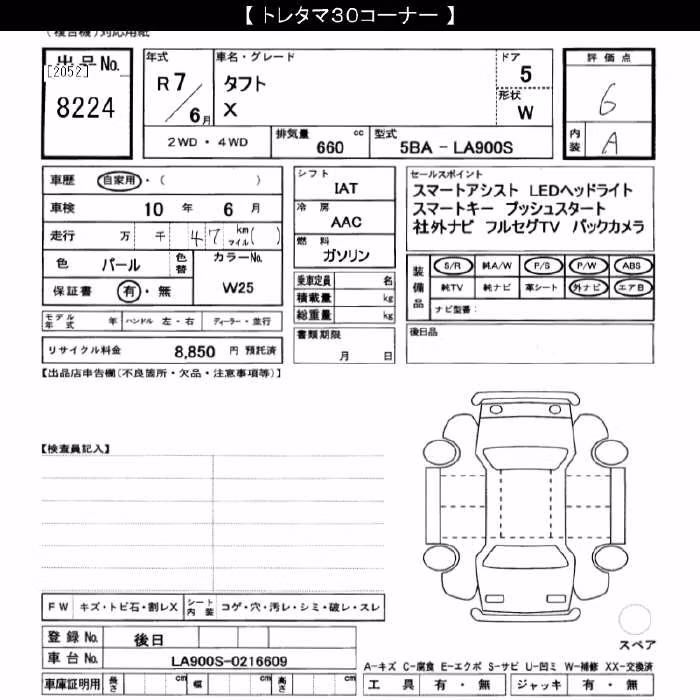 【 トレタマ30コーナー 】
(複合機)対応用紙
出品No.
[2052]
8224
年式
R 7
6月
車名・グレード
タフト
X
ドア
5
形状
W
評価点
6
内装
A
2WD ・ 4WD
排気量
660 cc
型式
5BA - LA900S
車歴 自家用・( )
車検 10 年 6 月
走行 万 千 47 km マイル( )
色 パール 色替 カラーNo.
保証書 有・無 W25
シフト
IAT
冷房
AAC
燃料
ガソリン
乗車定員 名
積載量 kg
総重量 kg
セールスポイント
スマートアシスト LEDヘッドライト
スマートキー プッシュスタート
社外ナビ フルセグTV バックカメラ
装備品
S/R 純A/W P/S P/W ABS
純TV 純ナビ 革シート 外ナビ エアB
ナビ型番:
モデル年式 年 ハンドル 左・右 ディーラー・並行
書類期限
月 日
後日品
リサイクル料金 8,850 円 預託済
【出品店申告欄(不良箇所・欠品・注意事項等)】
【検査員記入】
FW キズ・トビ石・割レX シート内装 コゲ・穴・汚レ・シミ・破レ・スレ
登録No. 後日
車台No. LA900S-0216609
車庫証明用 長さ cm 幅 cm 高さ cm
スペア
A-キズ C-腐食 E-エクボ S-サビ U-凹ミ W-補修 XX-交換済
工具 有・無 ジャッキ 有・無